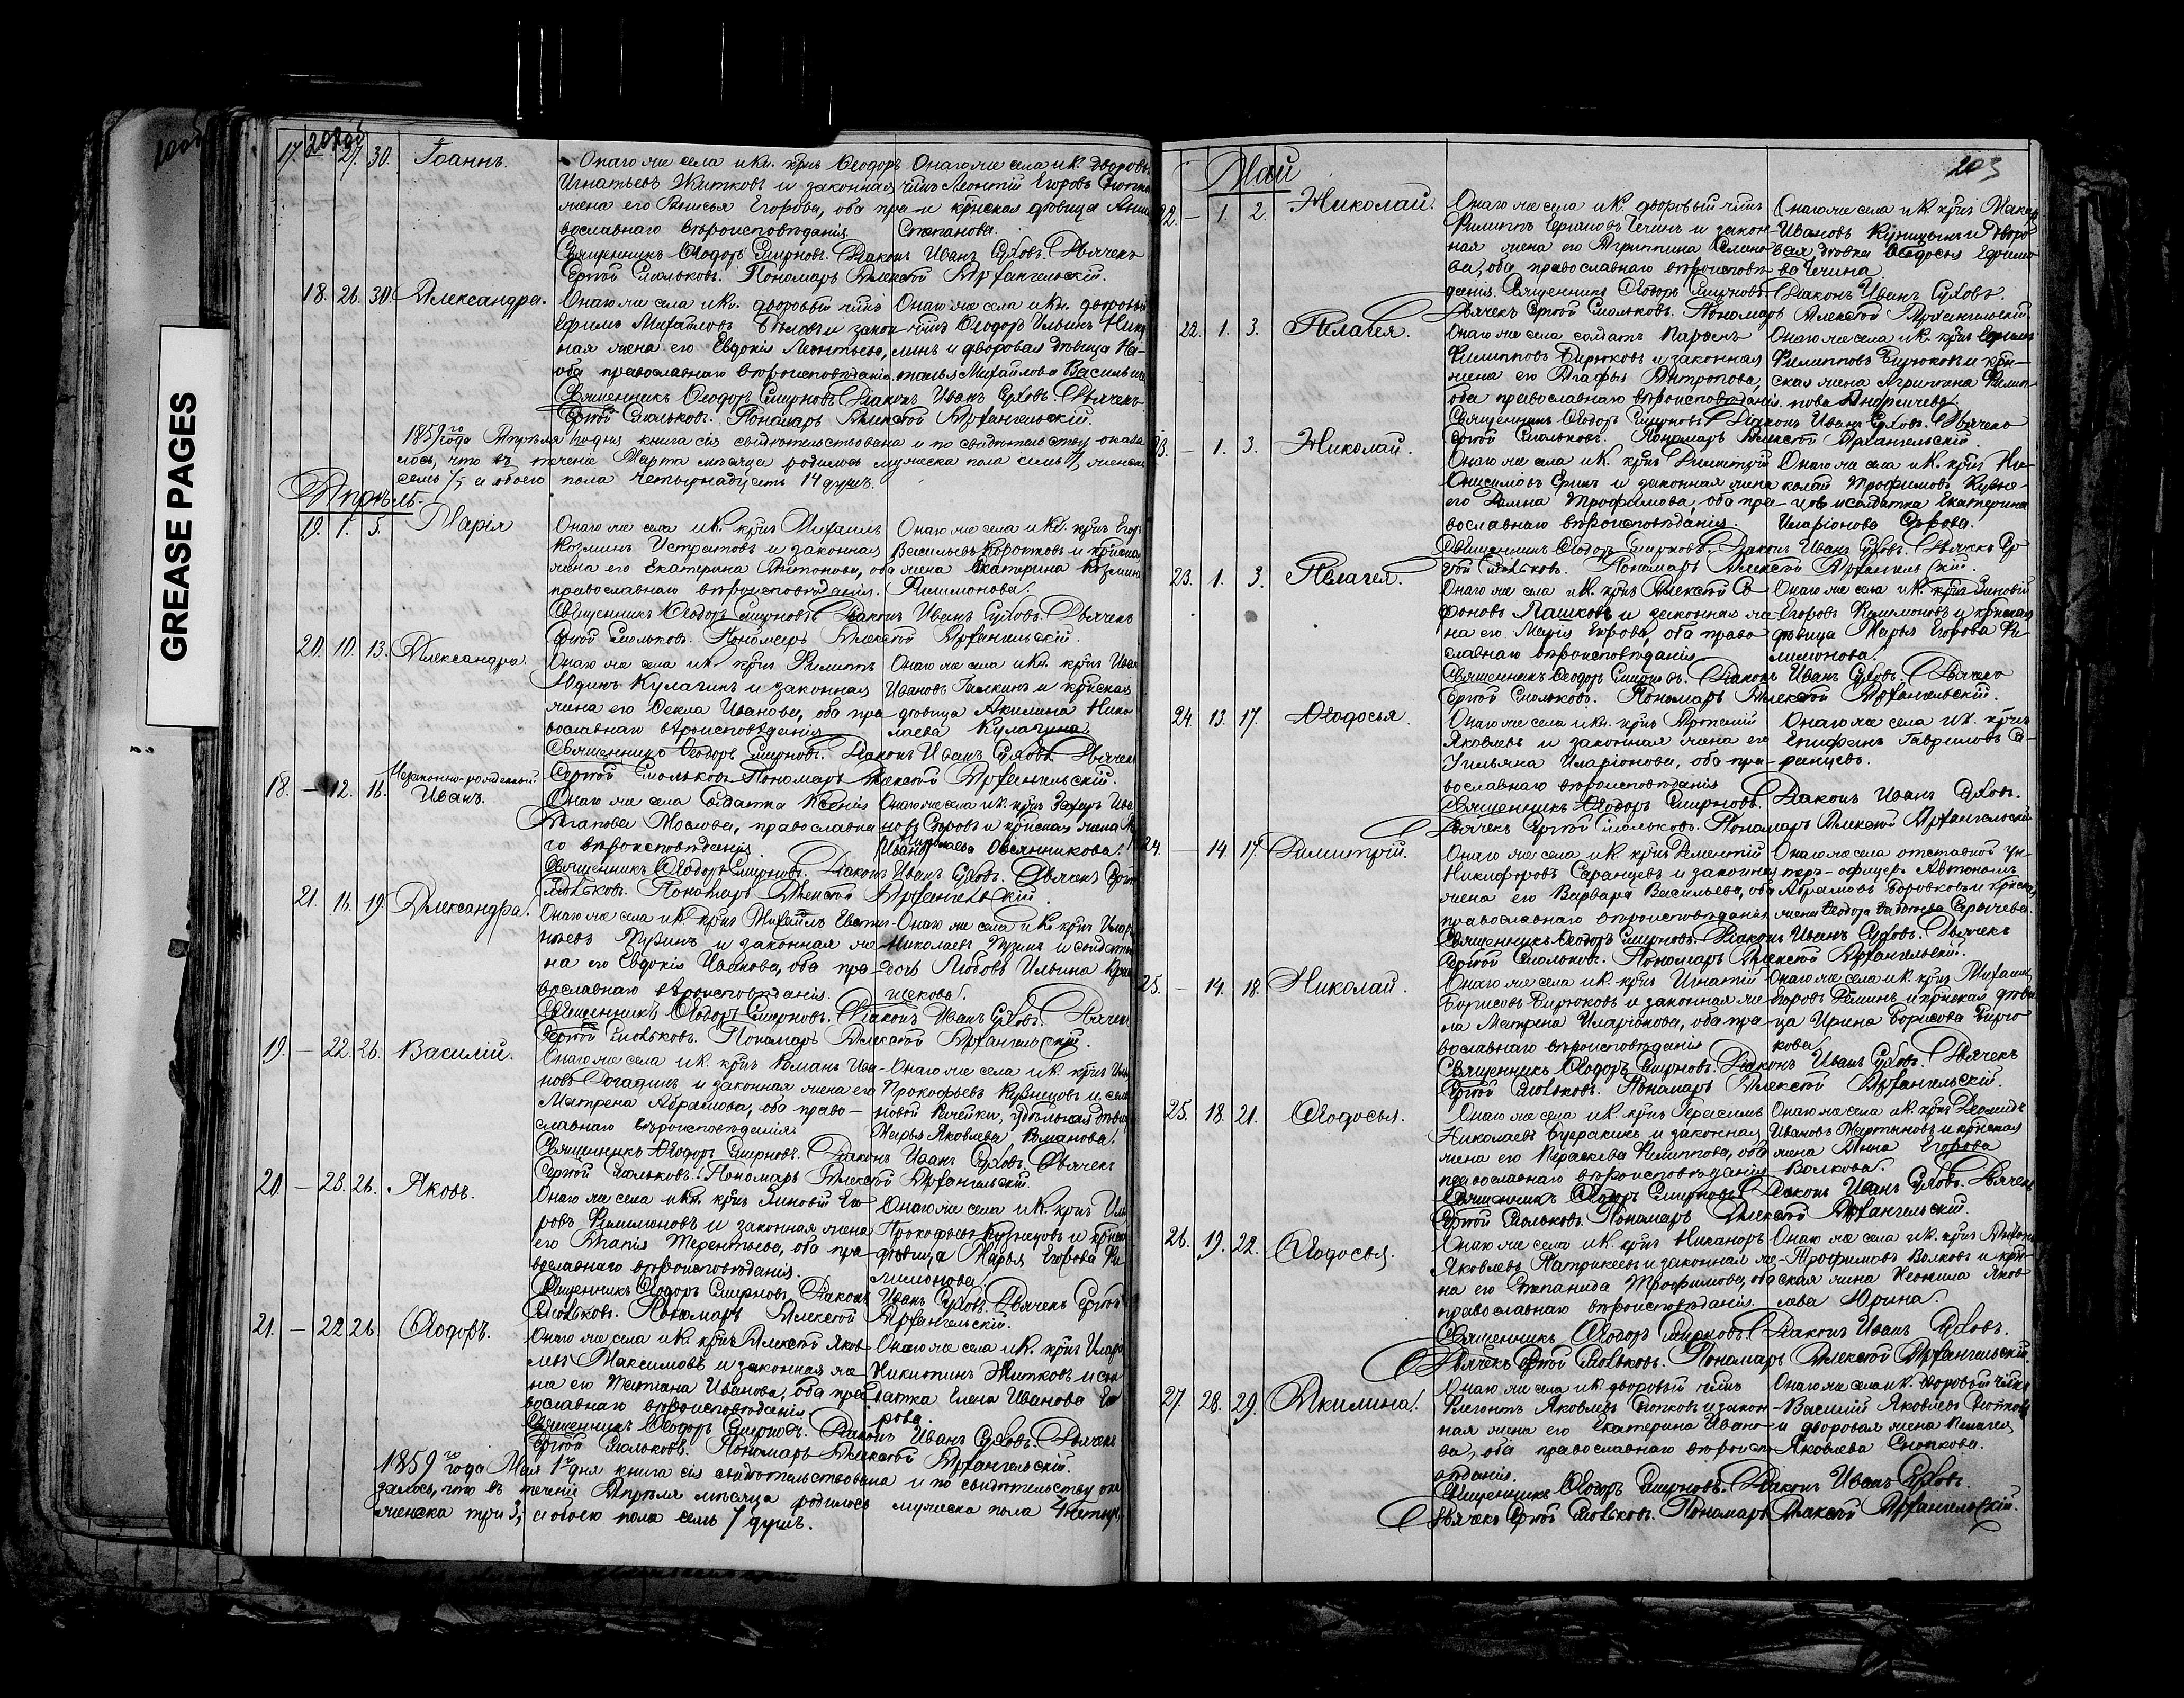 GREASE PAGES
17. 27. 30. Іоаннъ.
Онаго же села и Кн. крнъ Ѳеодоръ
Игнатьевъ Житковъ и законная
жена его Анисья Егорова, оба пра-
вославнаго вѣроисповѣданія.
Онаго же села и К. дворовый
члкъ Леонтій Егоровъ
и крнская дѣвица Анна
Степанова.
Священникъ Ѳеодоръ Смирновъ. Діаконъ Иванъ Суховъ. Дьячекъ
Сергѣй Смольковъ. Пономарь Алексѣй Архангельскій.
18. 26. 30. Александра.
Онаго же села и Кн. дворовый члкъ
Ефимъ Михайловъ и закон-
ная жена его Евдокія Леонтьева,
оба православнаго вѣроисповѣданія.
Онаго же села и Кн. дворовый
члкъ Ѳеодоръ Ильинъ
и дворовая дѣвица На-
талья Михайлова
Священникъ Ѳеодоръ Смирновъ. Діаконъ Иванъ Суховъ. Дьячекъ
Сергѣй Смольковъ. Пономарь Алексѣй Архангельскій.
1859го года Апрѣля 1го дня книга сія свидѣтельствована и по свидѣтельству оказа
лось, что въ теченіе Марта мѣсяца родилось мужеска пола семь 7, женска
семь 7, а обоего пола четырнадцать 14 душъ.
Апрѣль
19. 1. 5. Марія
Онаго же села и К. крнъ Михаилъ
Козминъ Устратовъ и законная
жена его Екатерина Антонова, оба
православнаго вѣроисповѣданія.
Онаго же села и Кн. крнъ Егоръ
Васильевъ Коротковъ и крнская
жена Екатерина Козмина
Филимонова.
Священникъ Ѳеодоръ Смирновъ. Діаконъ Иванъ Суховъ. Дьячекъ
Сергѣй Смольковъ. Пономарь Алексѣй Архангельскій.
20. 10. 13. Александра.
Онаго же села и К. крнъ Филиппъ
Юдинъ Кулагинъ и законная
жена его Ѳекла Иванова, оба пра-
вославнаго вѣроисповѣданія
Онаго же села и Кн. крнъ Иванъ
Ивановъ и крнская
дѣвица Акилина Нико
лаева Кулагина.
Священникъ Ѳеодоръ Смирновъ. Діаконъ Иванъ Суховъ. Дьячекъ
Сергѣй Смольковъ. Пономарь Алексѣй Архангельскій.
18. — 12. 16. Незаконно-рожденный
Иванъ.
Онаго же села солдатка Ксенія
Агапова Маслова, православна
го вѣроисповѣданія.
Онаго же села и К. крнъ Захаръ Ива
новъ Егоровъ и крнская жена
Овсянникова.
Священникъ Ѳеодоръ Смирновъ. Діаконъ Иванъ Суховъ. Дьячекъ Сергѣй
Смольковъ. Пономарь Алексѣй Архангельскій.
21. 16. 19. Александра.
Онаго же села и К. крнъ Михаилъ
Пузинъ и законная же
на его Евдокія Иванова, оба пра-
вославнаго вѣроисповѣданія.
Онаго же села и К. крнъ Илар
Николаевъ Пузинъ и солдатск
дочь Любовь Ильина
щекова.
Священникъ Ѳеодоръ Смирновъ. Діаконъ Иванъ Суховъ. Дьячекъ
Сергѣй Смольковъ. Пономарь Алексѣй Архангельскій.
19. — 22. 26. Василій.
Онаго же села и К. крнъ Романъ Ива-
новъ Догадинъ и законная жена его
Матрена Абрамова, оба право-
славнаго вѣроисповѣданія.
Онаго же села и К. крнъ
Прокофьевъ Кузнецовъ и села
новой Рачейки, удѣльная дѣвица
Марья Яковлева Романова.
Священникъ Ѳеодоръ Смирновъ. Діаконъ Иванъ Суховъ. Дьячекъ
Сергѣй Смольковъ. Пономарь Алексѣй Архангельскій.
20. — 23. 26. Яковъ.
Онаго же села и Кн. крнъ Зиновій Его
ровъ Филимоновъ и законная жена
его Агапія Терентьева, оба пра
вославнаго вѣроисповѣданія.
Онаго же села и К. крнъ
Прокофьевъ Кузнецовъ и крнская
дѣвица Марья Егорова Фи
лимонова.
Священникъ Ѳеодоръ Смирновъ. Діаконъ Иванъ Суховъ. Дьячекъ Сергѣй
Смольковъ. Пономарь Алексѣй Архангельскій.
21. — 22. 26. Ѳеодоръ.
Онаго же села и К. крнъ Алексѣй Яков
левъ Максимовъ и законная же
на его Татіана Иванова, оба пра
вославнаго вѣроисповѣданія.
Онаго же села и К. крнъ Иларі
Никитинъ Житковъ и сол
датка Елена Иванова Его
рова.
Священникъ Ѳеодоръ Смирновъ. Діаконъ Иванъ Суховъ. Дьячекъ
Сергѣй Смольковъ. Пономарь Алексѣй Архангельскій.
1859го года Мая 1го дня книга сія свидѣтельствована и по свидѣтельству ока
залось, что въ теченіе Апрѣля мѣсяца родилось мужеска пола 4 четыре,
женска три 3, а обоего пола семь 7 душъ.
203
Май
22. — 1. 2. Николай.
Онаго же села и К. дворовый члкъ
Филиппъ Чечинъ и закон-
ная жена его Агриппина Семено
ва, оба православнаго вѣроисповѣ
данія.
Онаго же села и К. крнъ Макаръ
Ивановъ Куницынъ и дворо
вая дѣвка Ѳеодосья Ефимо
ва Чечина.
Священникъ Ѳеодоръ Смирновъ. Діаконъ Иванъ Суховъ.
Дьячекъ Сергѣй Смольковъ. Пономарь Алексѣй Архангельскій.
22. 1. 3. Пелагея.
Онаго же села солдатъ Парѳенъ
Филипповъ Бирюковъ и законная
жена его Агафья Антропова,
оба православнаго вѣроисповѣданія.
Онаго же села и К. крнъ Ефимъ
Филипповъ Бирюковъ и крн-
ская жена Агриппена Филип-
пова Андреичева.
Священникъ Ѳеодоръ Смирновъ. Діаконъ Иванъ Суховъ. Дьячекъ
Сергѣй Смольковъ. Пономарь Алексѣй Архангельскій.
23. — 1. 3. Николай.
Онаго же села и К. крнъ Димитрій
Онисимовъ и законная жена
его Трофимова, оба пра-
вославнаго вѣроисповѣданія.
Онаго же села и К. крнъ Ни-
колай Трофимовъ
и солдатка Екатерина
Иларіонова
Священникъ Ѳеодоръ Смирновъ. Діаконъ Иванъ Суховъ. Дьячекъ Сер
гѣй Смольковъ. Пономарь Алексѣй Архангельскій.
23. 1. 3. Пелагея.
Онаго же села и К. крнъ Алексѣй Со
фоновъ Лашковъ и законная же
на его Марія Егорова, оба право
славнаго вѣроисповѣданія
Онаго же села и К. крнъ Зиновій
Егоровъ Филимоновъ и крнская
дѣвица Марья Егорова Фи
лимонова.
Священникъ Ѳеодоръ Смирновъ. Діаконъ Иванъ Суховъ. Дьячекъ
Сергѣй Смольковъ. Пономарь Алексѣй Архангельскій.
24. 13. 17. Ѳеодосья.
Онаго же села и Кн. крнъ Артемій
Яковлевъ и законная жена его
Ульяна Иларіонова, оба пра-
вославнаго вѣроисповѣданія
Онаго же села и К. крнъ
Епифанъ Гавриловъ Са-
ранцевъ.
Священникъ Ѳеодоръ Смирновъ. Діаконъ Иванъ Суховъ.
Дьячекъ Сергѣй Смольковъ. Пономарь Алексѣй Архангельскій
24. — 14. 17. Димитрій.
Онаго же села и К. крнъ Дементій
Никифоровъ Саранцевъ и законная
жена его Варвара Васильева, оба
православнаго вѣроисповѣданія.
Онаго же села отставной ун-
теръ-офицеръ Автономъ
Абрамовъ Боровковъ и крнская
жена Ѳеодора Сарычева.
Священникъ Ѳеодоръ Смирновъ. Діаконъ Иванъ Суховъ. Дьячекъ
Сергѣй Смольковъ. Пономарь Алексѣй Архангельскій.
25. — 14. 18. Николай.
Онаго же села и К. крнъ Игнатій
Борисовъ Бирюковъ и законная же
на Матрена Иларіонова, оба пра
вославнаго вѣроисповѣданія
Онаго же села и К. крнъ Михаилъ
Егоровъ и крнская дѣви
ца Ирина Борисова Бирю
кова.
Священникъ Ѳеодоръ Смирновъ. Діаконъ Иванъ Суховъ. Дьячекъ
Сергѣй Смольковъ. Пономарь Алексѣй Архангельскій.
25. 18. 21. Ѳеодосья.
Онаго же села и К. крнъ Герасимъ
Николаевъ и законная
жена его Параскева Филиппова, оба
православнаго вѣроисповѣданія
Онаго же села и К. крнъ Деомидъ
Ивановъ Мартыновъ и крнская
жена Анна Егорова
Волкова.
Священникъ Ѳеодоръ Смирновъ. Діаконъ Иванъ Суховъ. Дьячекъ
Сергѣй Смольковъ. Пономарь Алексѣй Архангельскій.
26. 19. 22. Ѳеодосья.
Онаго же села и К. крнъ Никаноръ
Яковлевъ Патрикеевъ и законная же-
на его Степанида Трофимова, оба
православнаго вѣроисповѣданія.
Онаго же села и К. крнъ
Трофимовъ Волковъ и крн-
ская жена Неонила Яков
лева Юрина.
Священникъ Ѳеодоръ Смирновъ. Діаконъ Иванъ Суховъ.
Дьячекъ Сергѣй Смольковъ. Пономарь Алексѣй Архангельскій.
27. 28. 29. Акилина.
Онаго же села и К. дворовый члкъ
Яковлевъ Снотковъ и закон-
ная жена его Екатерина Ивано-
ва, оба православнаго вѣроиспо
вѣданія.
Онаго же села и К. дворовый члкъ
Василій Яковлевъ Снотковъ
и дворовая жена Пелагея
Яковлева Сноткова.
Священникъ Ѳеодоръ Смирновъ. Діаконъ Иванъ Суховъ.
Дьячекъ Сергѣй Смольковъ. Пономарь Алексѣй Архангельскій.